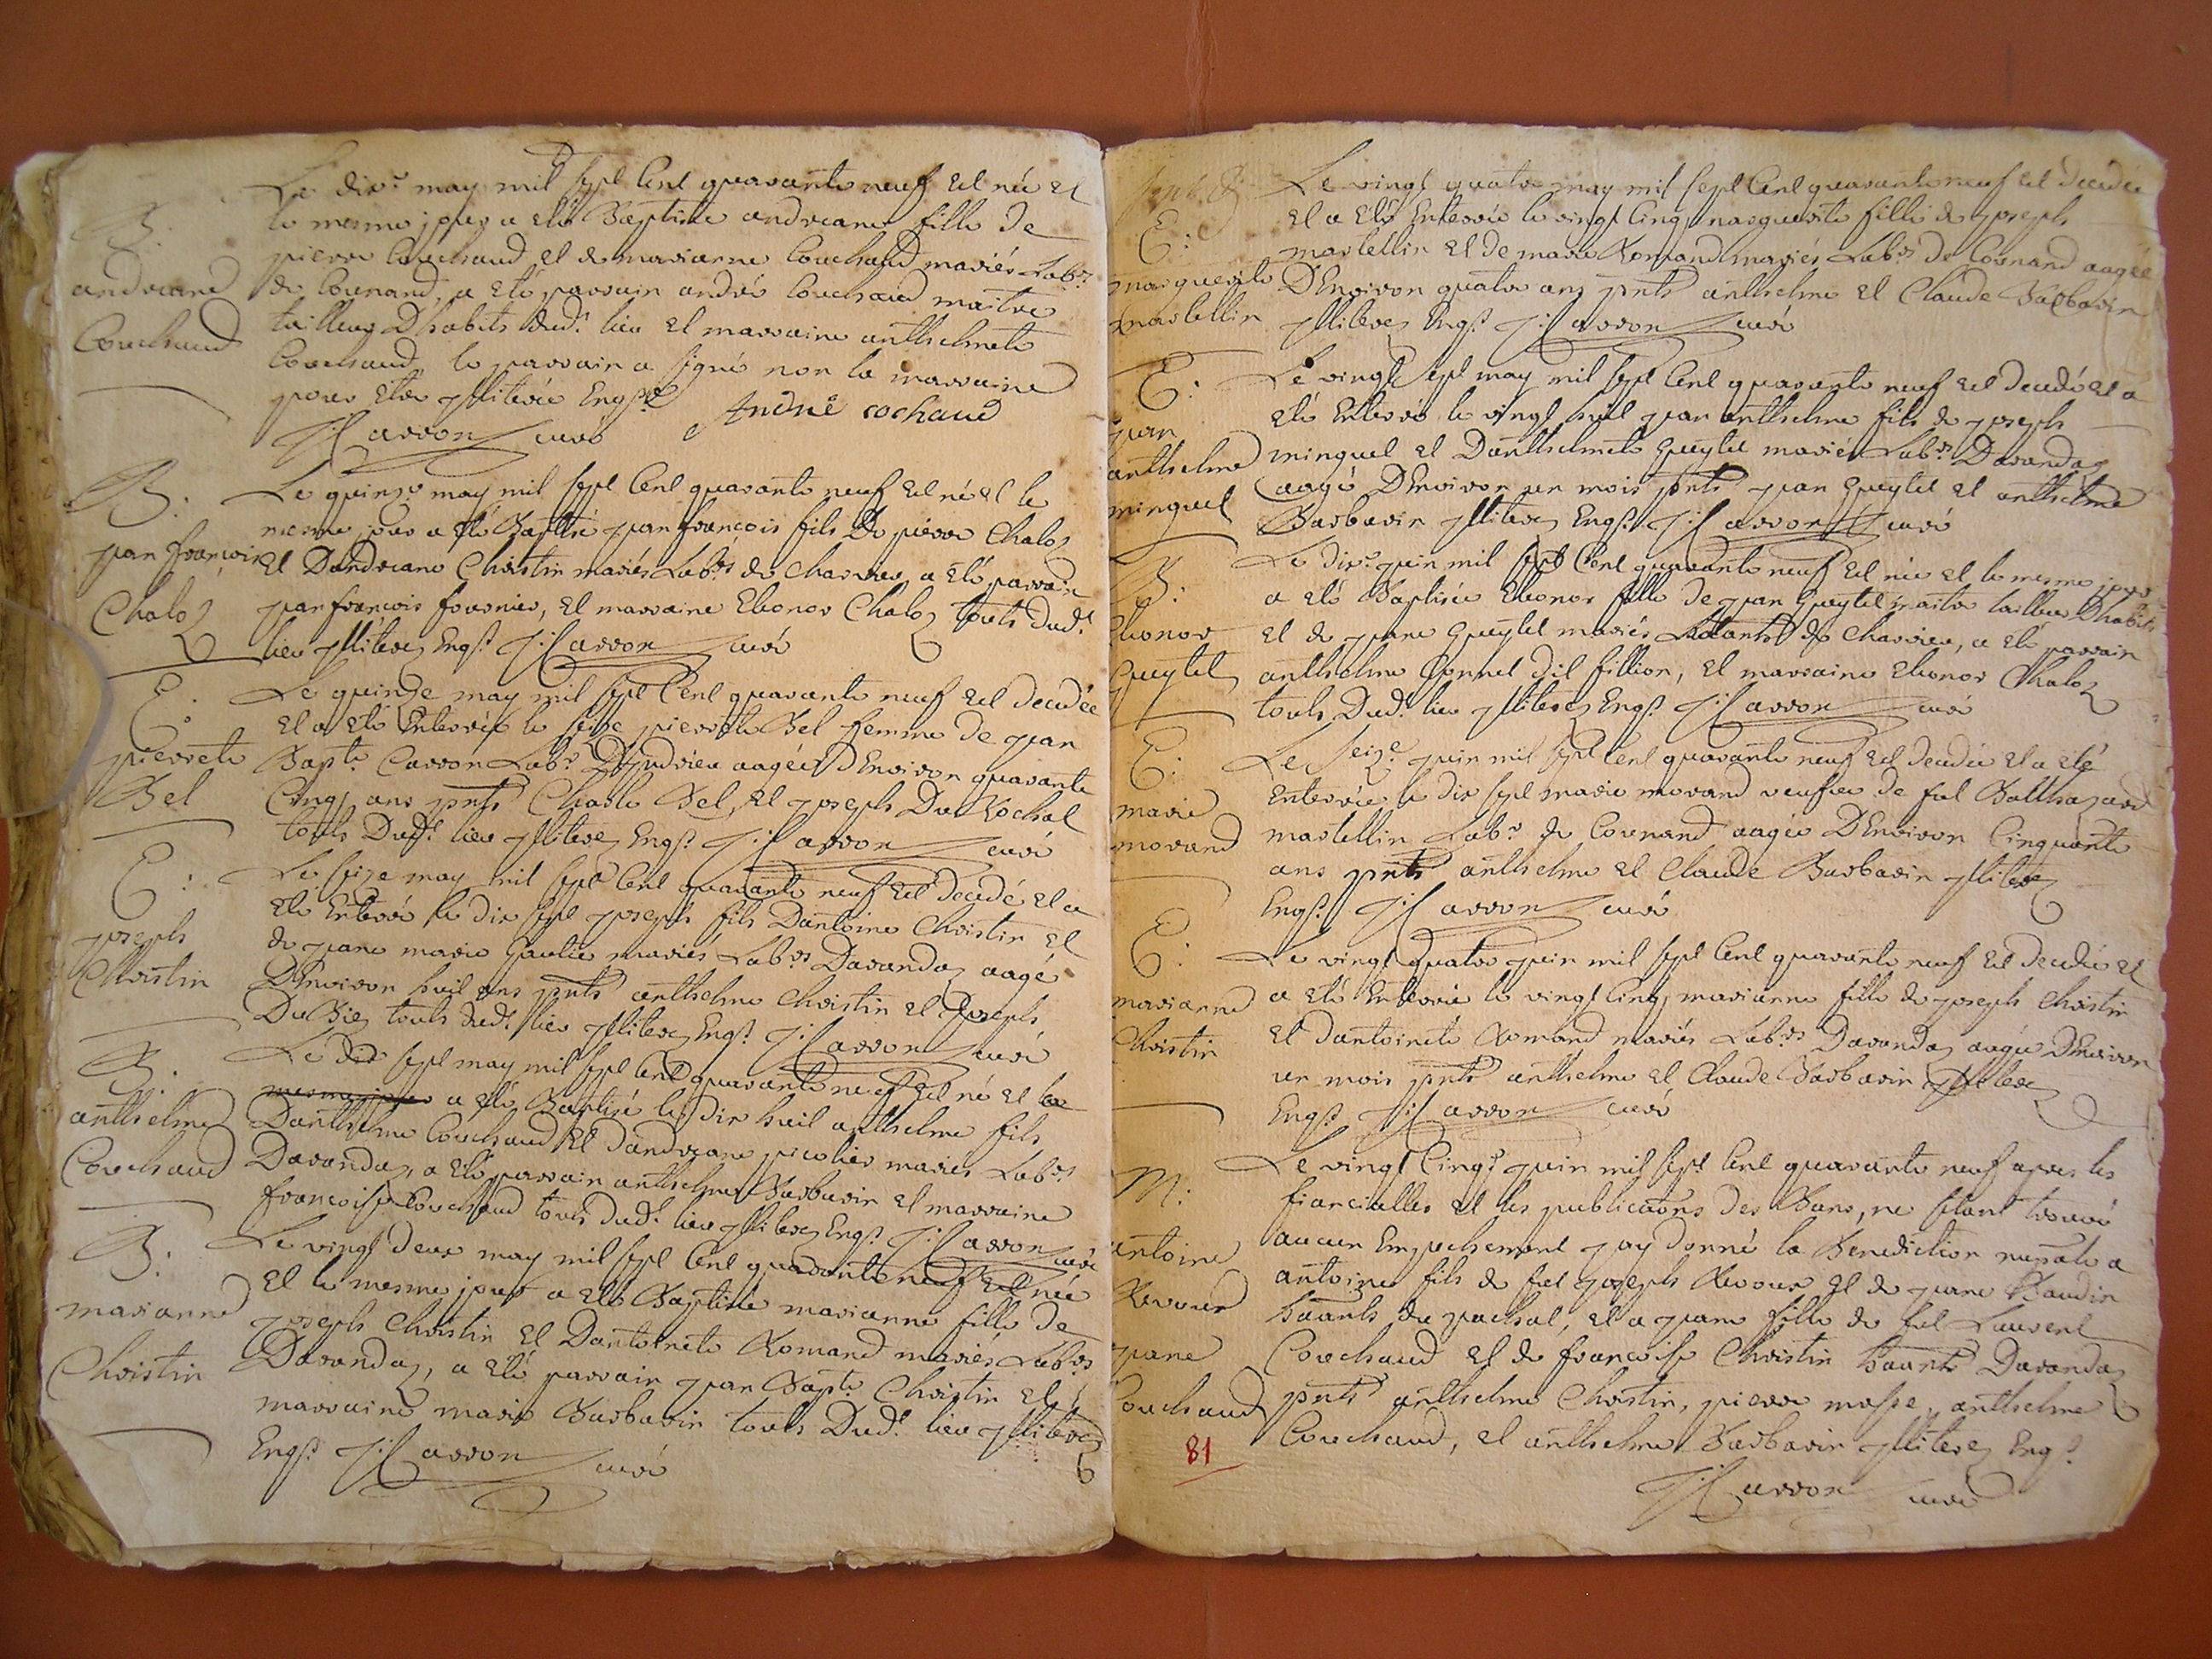 B:
andreane
Couchaud
Le dix.e may mil sept Cent quarante neuf est née et
le mesme jour a esté Baptisée andreane fille de
pierre Couchaud et de marianne Couchaud mariés Lab.rs
de Counand, a esté parrain andré Couchaud maitre
tailleur Dhabits dud.t lieu et marraine anthelmete
Couchaud, le parrain a signé non la marraine
pour estre illiterée Enq.se André cochaud
J: Carron curé
B:
jean françois
Chaloz
Le quinze may mil sept Cent quarante neuf est né et le
mesme jour a esté Baptisé jean françois fils De pierre Chaloz
et Dandreane Christin mariés Lab.rs de Charvieu, a esté parrain
jean françois fournier, et marraine Eleonor Chaloz touts Dud.t
lieu jlliterez Enq.s J: Carron curé
E:
pierrete
Bel
Le quinze may mil sept Cent quarante neuf est decedée
et a esté Enterrée le seize pierrete Bel femme de jean
Bapt.e Carron Lab.r aagée DEnviron quarante
Cinq ans pnts Charle Bel, et joseph Du Rochat
touts Dud.t lieu jlliterez Enq.s J: Carron curé
E:
joseph
Christin
Le seize may mil sept Cent quarante neuf est decedé et a
esté Enterré le dix sept joseph fils Dantoine Christin et
de jeane marie mariés Lab.rs Davandaz aagé
DEnviron huit ans pnts anthelme Christin et joseph
Du Biez touts dud.t lieu jlliterez Enq.s J: Carron curé
B:
anthelme
Couchaud
Le dix sept may mil sept Cent quarante neuf est né et le
mesme jour a esté Baptisé le dix huit anthelme fils
Danthelme Couchaud et Dandreane picolier mariés Lab.rs
Davandaz, a esté parrain anthelme Barbarin et marraine
françoise Couchaud touts dud.t lieu jlliterez Enq.s J: Carron curé
B:
marianne
Christin
Le vingt deux may mil sept Cent quarante neuf est née
et le mesme jour a esté Baptisée marianne fille de
joseph Christin et Dantoinete Romand mariés Lab.rs
Davandaz, a esté parrain jean Bapt.e Christin et
marraine marie Barbarin touts Dud.t lieu jlliterez
Enq.s J: Carron curé
E:
marguerite
martellin
Le vingt quatre may mil sept Cent quarante neuf est decedée
et a esté Enterrée le vingt Cinq marguerite fille de joseph
martellin et de marie Romand mariés Lab.rs de Counand aagée
DEnviron quatre ans pnts anthelme et Claude Barbarin
jlliterez Enq.s J: Carron curé
E:
jean
anthelme
minguet
Le vingt sept may mil sept Cent quarante neuf est decedé et a
esté Enterré le vingt huit jean anthelme fils de joseph
minguet et Danthelmete Gueytet mariés Lab.rs Davandaz
aagé DEnviron un mois pnts jean Gueytet et anthelme
Barbarin jlliterez Enq.s J: Carron curé
B:
Eleonor
Gueytet
Le dix.e juin mil sept Cent quarante neuf est née et le mesme jour
a esté Baptisée Eleonor fille de jean Gueytet maitre tailleur Dhabits
et de jeane Gueytet mariés de Charvieu, a esté parrain
anthelme dit fillion, et marraine Eleonor Chaloz
touts Dud.t lieu jlliterez Enq.s J: Carron curé
E:
marie
morand
Le Seize juin mil sept Cent quarante neuf est decedée et a esté
Enterrée le dix sept marie morand veufve de fut Balthazard
martellin Lab.r de Counand aagée DEnviron Cinquante
ans pnts anthelme et Claude Barbarin jlliterez
Enq.s J: Carron curé
E:
marianne
Christin
Le vingt quatre juin mil sept Cent quarante neuf est decedée et
a esté Enterrée le vingt Cinq, marianne fille de joseph Christin
et Dantoinete Romand mariés Lab.rs Davandaz aagée DEnviron
un mois pnts anthelme et Claude Barbarin jlliterez
Enq.s J: Carron curé
M:
antoine
Revoux
jeane
Couchaud
Le vingt Cinq.e juin mil sept Cent quarante neuf apres les
fiancialles et les publications des Bans, ne sétant trouvé
aucun Empechement jay donné la Benediction nup.ale a
antoine fils de fut joseph Revoux et de jeane Baudin
habitants du pachal, et a jeane fille de fut Laurent
Couchaud et de françoise Christin Davandaz
pnts anthelme Christin, pierre masse, anthelme
Couchaud, et anthelme Barbarin jlliterez Enq.s
J: Carron curé
81